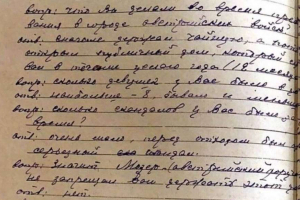 вопр: что Вы делали во время
вания в городе австрийских войск
отв: вначале держали чайную, а по
открыли публичный дом, который
вал в течение целого года (18 месяц
вопр: сколько девушек у Вас было в
отв: наиболее - 8 бывало и меньше
вопр: сколько скандалов у Вас было
время?
отв: очень мало, перед отходом был
серьезный скандал.
вопр: значит (австрийский
не запрещал Вам держать этот
отв: нет.